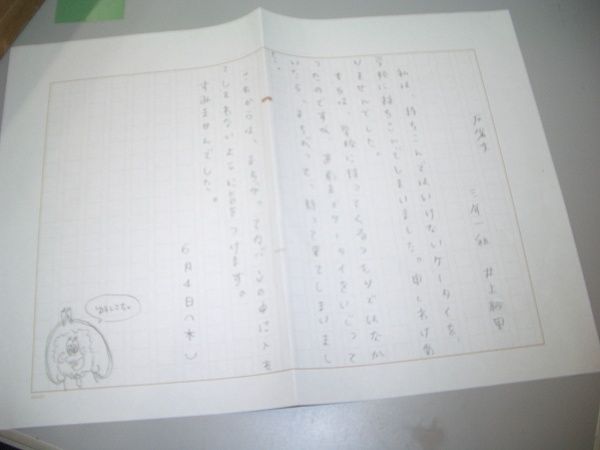 反省文 三年一組 井上
私は、持ちこんではいけないケータイを、
学校に持ちこんでしまいました。申しわけあ
りませんでした。
学校に持ってくるつもりではなか
ったのですが、ケータイをいじって
いたら、まちがって、持って来てしまいまし
た。
これからは、まちがってカバンの中に入れ
てしまわないように気をつけます。
すみませんでした。
6月4日(木)